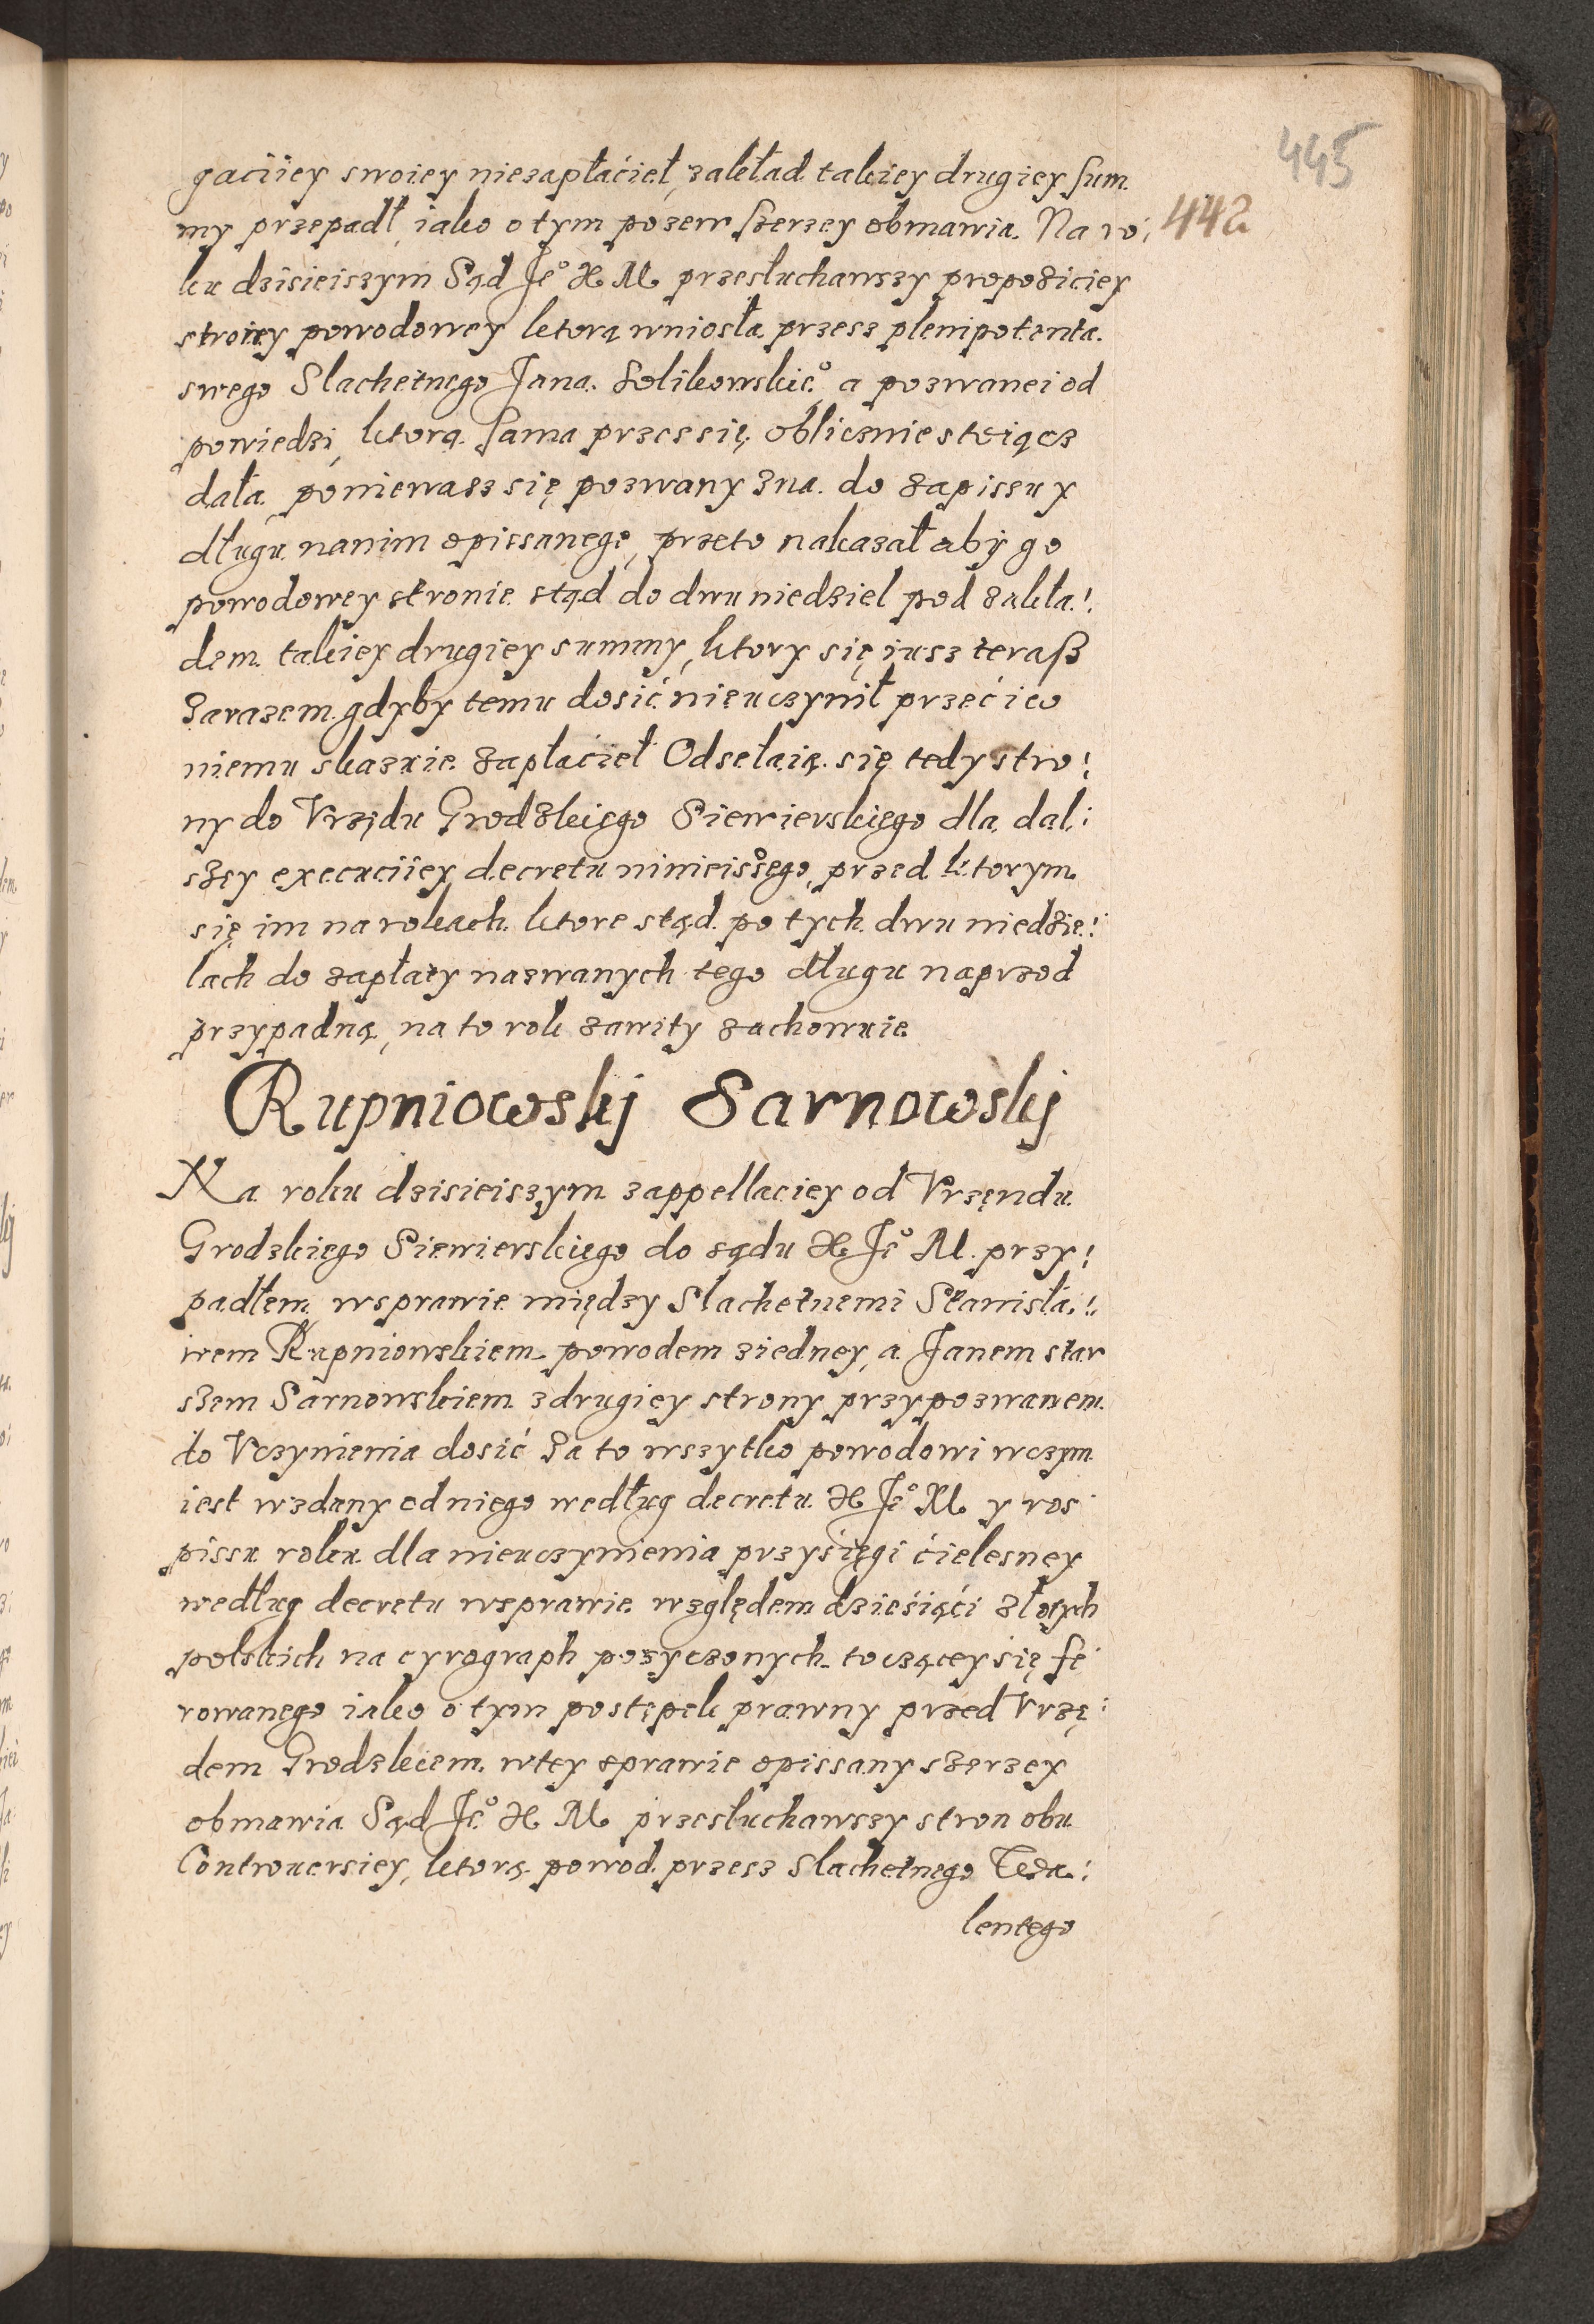 445
442
gaciiey swoiey niezapłaćieł, zakład takiey drugiey sum
my przepadł, iako o tym pozew szerzey obmawia. Na ro:
ku dzisieiszym Sąd Je° X M przesłuchawszy propoziciey
strony powodowey ktorą wniosła przesz plenipotenta
swego Slachetnego Jana Solikowskie° a pozwanei od
powiedzi, ktorą sama przes się oblicznie stoiącz
dała, poniewasz się pozwany zna do zapissu y
długu nanim opissanego, przeto nakazał aby go
powodowey stronie stąd do dwu niedziel pod zakła:
dem takiey drugiey summy, ktory się iusz terasz
zarazem gdyby temu dosić nieuczynił przećico
niemu skazuie zapłaćieł Odsełaią się tedy stro:
ny do Vrzędu Grodzkiego Siewierskiego dla dal:
szey execuciiey decretu ninieiszego, przed ktorym
się im na rokach ktore stąd po tych dwu niedzie:
lach do zapłaty nazwanych tego długu naprzod
przypadną, na to rok zawity zachowuie
Rupniowskj Sarnowskj
Na roku dzisieiszym zappellaciey od Vrzęndu
Grodzkiego Siewierskiego do sądu X Je° M. przy:
padłem, wsprawie między Slachetnemi Stanisła:
wem Rupniowskiem powodem ziedney, a Janem star
szem Sarnowskiem zdrugiey strony przypozwanem
do Vczynienia dosić za to wszytko powodowi wczym
iest wzdany od niego według decretu X Je° M y ros
pissu roku dla nieuczynienia przysięgi ćielesney
według decretu wsprawie względem dzieśiąći złotych
polskich na cyrograph pozyczonych toczącey się fe
rowanego iako o tym postępek prawny przed Vrzę:
dem Grodzkiem wtey sprawie opissany szerzey
obmawia Sąd Je° X M przesłuchawszy stron obu
Controuersiey, ktorą powod przesz Slachetnego
lentego